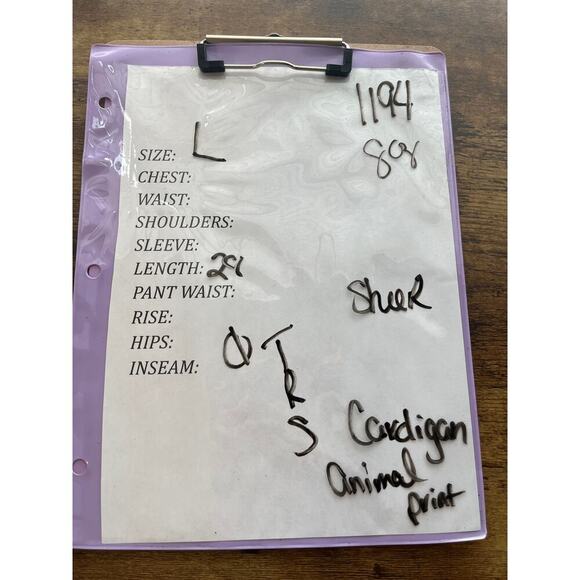 1194
8oz
SIZE: L
CHEST:
WAIST:
SHOULDERS:
SLEEVE:
LENGTH: 29
PANT WAIST:
RISE:
HIPS:
INSEAM:
SheeR
T
R
S
Cardigan
animal
print